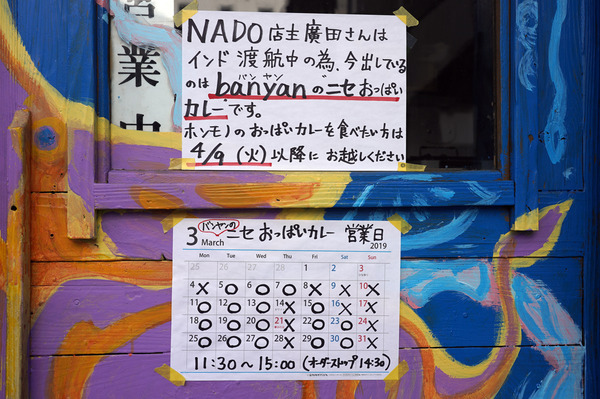 営業中
NADO店主廣田さんは
インド渡航中の為、今出している
のはbanyanの"ニセおっぱい
バンヤン
カレー"です。
ホンモノのおっぱいカレーを食べたい方は
4/9(火)以降にお越しください
3 バンヤンの ニセおっぱいカレー 営業日
March 2019
Mon Tue Wed Thu Fri Sat Sun
25 26 27 28 1 2 3
4 X 5 O 6 O 7 O 8 O 9 X 10 X
11 O 12 O 13 O 14 X 15 O 16 X 17 X
18 O 19 O 20 O 21 X 22 O 23 O 24 X
25 O 26 O 27 O 28 O 29 O 30 O 31 X
11:30〜15:00 (オーダーストップ14:30)